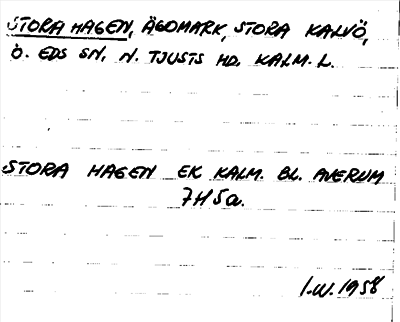 STORA HAGEN, ÄGOMARK, STORA KALVÖ,
Ö. EDS SN, N. TJUSTS HD, KALM. L.
STORA HAGEN EK KALM. BL. AVERUM
7H5a.
I.W. 1958